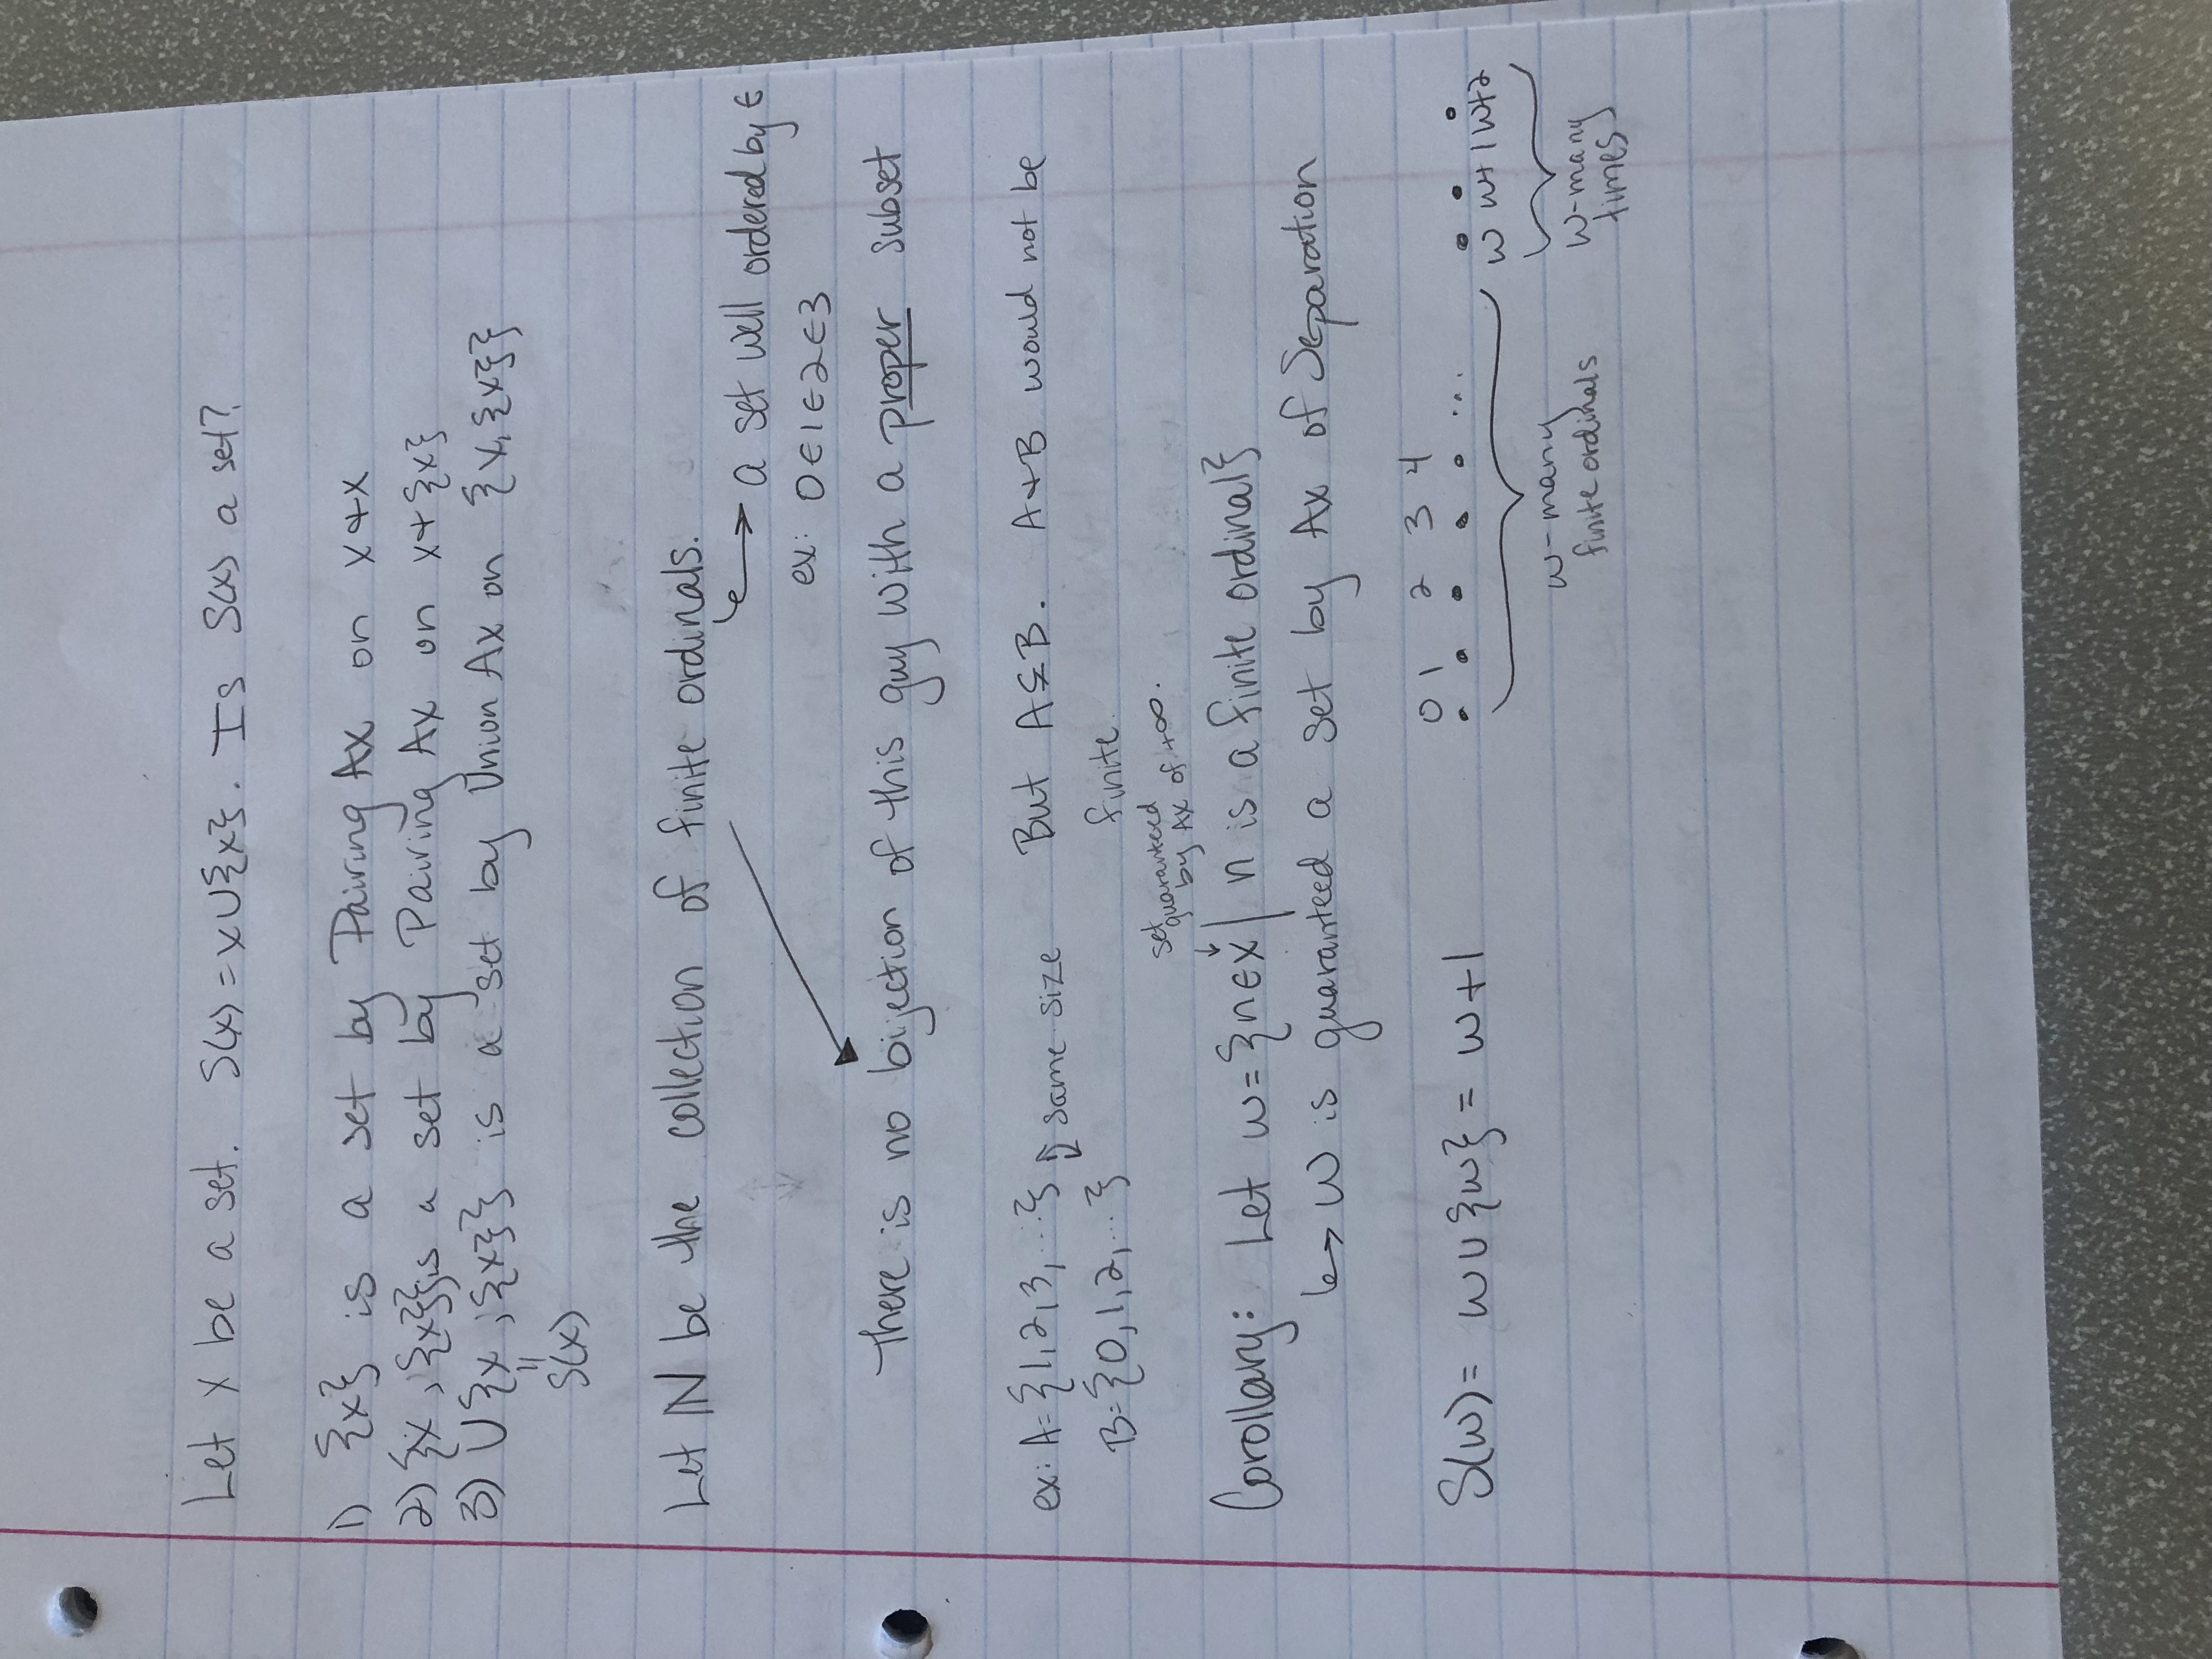 Let x be a set. S(x) = x∪{x}. Is S(x) a set?
1) {x} is a set by Pairing Ax on x + x
2) {x, {x}} is a set by Pairing Ax on x + {x}
3) ∪{x, {x}} is a set by Union Ax on {x, {x}}
=
S(x)
Let ℕ be the collection of finite ordinals.
↪ a set well ordered by ∈
ex: 0∈1∈2∈3
There is no bijection of this guy with a proper subset
ex: A= {1,2,3, ...} ↕ same size But A⊊B. A + B would not be
B= {0,1,2, ...} finite.
set guaranteed by Ax of +∞.
Corollary: Let ω= {n∈x | n is a finite ordinal}
↪ ω is guaranteed a set by Ax of Separation
0 1 2 3 4
S(ω)= ω∪{ω} = ω+1 • • • • • ... • • •
ω ω+1 ω+2
ω-many finite ordinals
ω-many times